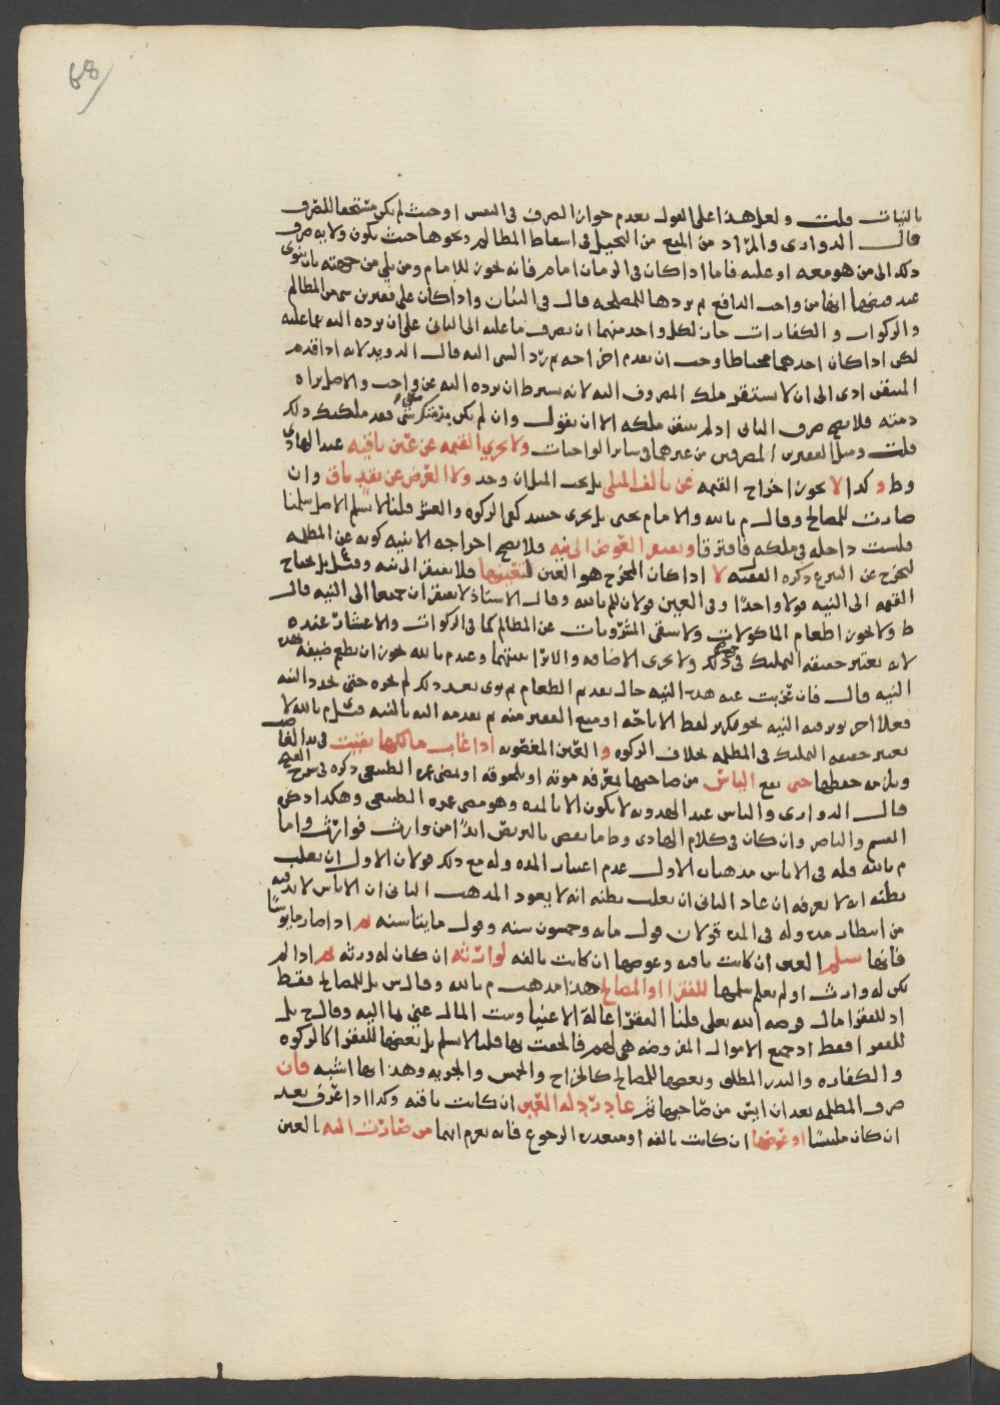 68
بالنيات قلت ولعل هذا على القول بعدم جواز الصرف في النفس او حيث لم يكن مستحقا للصرف
قال الدواري والمراد من المنع من التحيل في اسقاط المظالم ونحوها حيث يكون ولايه صرف
ذلك الى من هو معه او عليه فاما اذا كان في الزمان امام فانه يجوز للامام ومن يلي من جهته بان ينوي
عند قبضها انها من واجب الدافع ثم يردها للمصلحه قال في البيان واذا كان على فقيرين شي من المظالم
والزكوات والكفارات جاز لكل واحد منهما ان يصرف ما عليه الى الثاني على ان يرده اليه عما عليه
لكن اذا كان احدهما محتاطا وجب ان يقدم اخراجه ثم يرد الشي اليه قال الدويد لانه اذا قدم
المتيقن ادى الى ان لا يستقر ملك المصروف اليه لانه يشترط ان يرده اليه عن واجب والاصل براه
ذمته فلا يصح صرف الثاني اذ لم يتيقن ملكه الا ان يقول وان لم يكن فقد ملكتك ذلك
قلت ومثل الفقيرين المصرفين من غيرهما في ساير الواجبات ولا يجزي القيمه عن عين باقيه عند الهادي
وط وكذا لا يجوز اخراج القيمه عن تالف المثلي بل يجب المثل ان وجد ولا العرض عن نقد باق وان
صارت للمصالح وقال م بالله والامام يحيى بل يجزي حينئذ كفى الزكوه والعشر قلنا لا نسلم الاصل سلمنا
فليست داخله في ملكه فافترقا ويفتقر العوض الى نيه فلا يصح اخراجه الا بنيه كونه عن المظلمه
ليخرج عن التبرع ذكره الفقيه لا اذا كان المخرج هو العين لتعينها فلا يفتقر الى نيه وقيل بل يحتاج
القيمه الى النيه قولا واحدا وفي العين قولان للم بالله وقال الاستاذ لا يفتقران جميعا الى النيه قال
ط ولا يجوز اطعام الماكولات ولا سقي المشروبات عن المظالم كما في الزكوات والاعشار عنده
لانه يعتبر حقيقه التمليك في ذلك ولا يجزي الاضافه والانزا بنيتهما وعند م بالله يجوز ان يطعم ضيفه بهذه
النيه قال فان عزبت عنه هذه النيه حال تقديم الطعام ثم نوى بعد ذلك لم يجزه حتى يجدد النيه
فعلا اخر نويت فيه النيه نحو تكرير لفظ الاباحه او منع الفقير منه ثم يقدمه اليه بالنيه وقيل م بالله لا
يعتبر حقيقه التمليك في المظلمه خلاف الزكوه والعين المغصوبه اذا غاب مالكها بقيت في يد الغاصب
ويلزمه حفظها حتى يقع الياس من صاحبها بمعرفه موته او بلحوقه او بمضي عمره الطبيعي ذكره في شرح الفتح
قال الدواري والياس عند الهدويه لا يكون الا بالمده وهو مضي عمره الطبيعي وهكذا ذكر
القسم والناصر وان كان في كلام الهادي وط ما يقضي بالتربص ابدا من وارث فوارث واما
م بالله فله في الاياس مذهبان الاول عدم اعتبار المده وله مع ذلك قولان الاول ان يغلب
بظنه انه لا يعرفه ان عاد الثاني ان يغلب بظنه انه لا يعود المذهب الثاني ان الاياس لا بد فيه
من انتظار مده وله في المده قولان قول مايه وخمسون سنه وقول مايتا سنه ثم اذا صار مايوسا
فانها تسلم العين ان كانت باقيه وعوضها ان كانت تالفه لوارثه ان كان له ورثه ثم اذا لم
يكن له وارث او لم يعلم سلمها للفقرا او المصالح هذا مذهب م بالله وقال س بل للمصالح فقط
اذ للفقرا مال فرضه الله تعالى قلنا الفقرا عالة الاغنيا وبيت المال عني بها اليه وقال ح بل
للفقرا فقط اذ جميع الاموال المفروضه هي لهم فالحقت بها قلنا لا نسلم بل بعضها للفقرا كالزكوه
والكفاره والنذر المطلق وبعضها للمصالح كالخراج والخمس والجزيه وهذا بها اشبه فان
صرف المظلمه بعد ان ايس من صاحبها ثم عاد رد له العين ان كانت باقيه وكذا اذا عرف بعد
ان كان ملتبسا او عوضها ان كانت تالفه او متعذره الرجوع فانه يغرم ايهما من صارت اليه العين